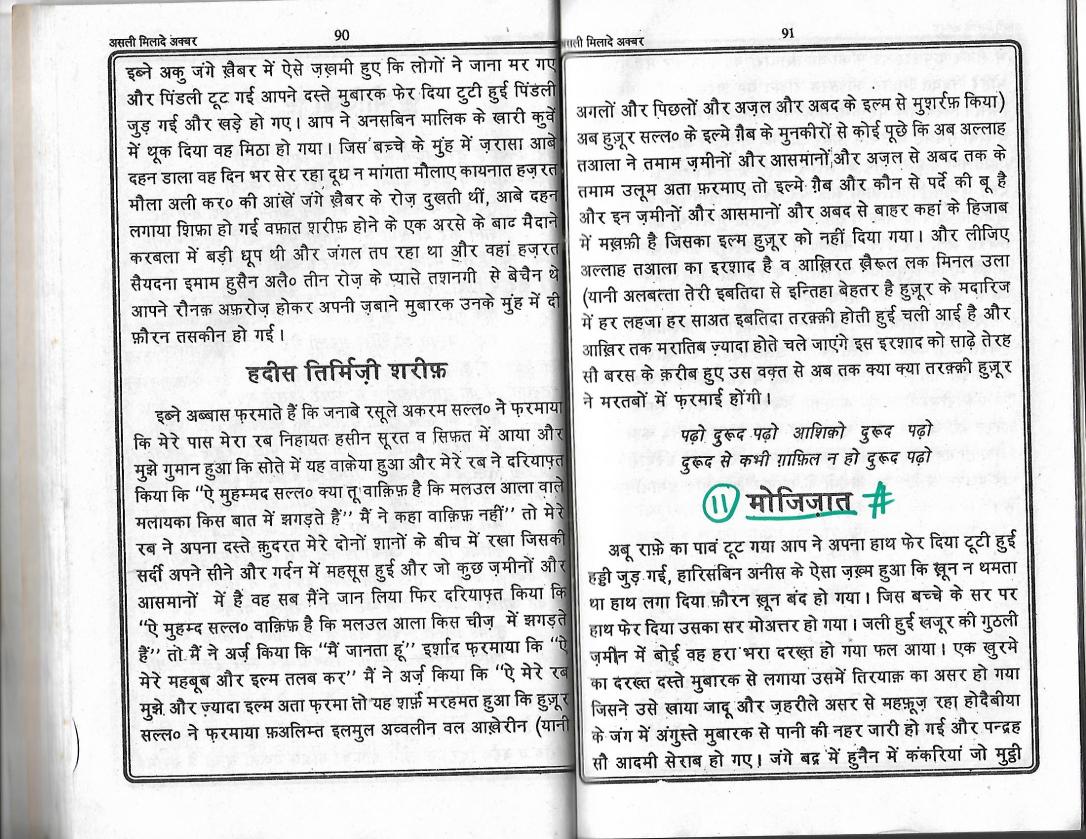 असली मिलादे अक्बर
90
इब्ने अकु जंगे ख़ैबर में ऐसे ज़ख़मी हुए कि लोगों ने जाना मर गए
और पिंडली टूट गई आपने दस्ते मुबारक फेर दिया टुटी हुई पिंडली
जुड़ गई और खड़े हो गए। आप ने अनसबिन मालिक के खारी कुवें
में थूक दिया वह मिठा हो गया। जिस बच्चे के मुंह में ज़रासा आबे
दहन डाला वह दिन भर सेर रहा दूध न मांगता मौलाए कायनात हज़रत
मौला अली कर० की आंखें जंगे ख़ैबर के रोज़ दुखती थीं, आबे दहन
लगाया शिफ़ा हो गई वफ़ात शरीफ़ होने के एक अरसे के बाद मैदाने
करबला में बड़ी धूप थी और जंगल तप रहा था और वहां हज़रत
सैयदना इमाम हुसैन अलै० तीन रोज़ के प्यासे तशनगी से बेचैन थे
आपने रौनक़ अफ़रोज़ होकर अपनी ज़बाने मुबारक उनके मुंह में दी
फ़ौरन तसकीन हो गई।
हदीस तिर्मिज़ी शरीफ़
इब्ने अब्बास फ़रमाते हैं कि जनाबे रसूले अकरम सल्ल० ने फ़रमाया
कि मेरे पास मेरा रब निहायत हसीन सूरत व सिफ़त में आया और
मुझे गुमान हुआ कि सोते में यह वाक़ेया हुआ और मेरे रब ने दरियाफ़्त
किया कि “ऐ मुहम्मद सल्ल० क्या तू वाक़िफ़ है कि मलउल आला वाले
मलायका किस बात में झगड़ते हैं” मैं ने कहा वाक़िफ़ नहीं” तो मेरे
रब ने अपना दस्ते क़ुदरत मेरे दोनों शानों के बीच में रखा जिसकी
सर्दी अपने सीने और गर्दन में महसूस हुई और जो कुछ ज़मीनों और
आसमानों में हैं वह सब मैंने जान लिया फिर दरियाफ़्त किया कि
“ऐ मुहम्द सल्ल० वाक़िफ़ है कि मलउल आला किस चीज़ में झगड़ते
हैं” तो मैं ने अर्ज़ किया कि “मैं जानता हूं” इर्शाद फ़रमाया कि “ऐ
मेरे महबूब और इल्म तलब कर” मैं ने अर्ज़ किया कि “ऐ मेरे रब
मुझे और ज़्यादा इल्म अता फ़रमा तो यह शर्फ़ मरहमत हुआ कि हुज़ूर
सल्ल० ने फ़रमाया फ़अलिम्त इलमुल अव्वलीन वल आख़ेरीन (यानी
असली मिलादे अक्बर
91
अगलों और पिछलों और अज़ल और अबद के इल्म से मुशर्रफ़ किया)
अब हुज़ूर सल्ल० के इल्मे ग़ैब के मुनकीरों से कोई पूछे कि अब अल्लाह
तआला ने तमाम ज़मीनों और आसमानों और अज़ल से अबद तक के
तमाम उलूम अता फ़रमाए तो इल्मे ग़ैब और कौन से पर्दे की बू है
और इन ज़मीनों और आसमानों और अबद से बाहर कहां के हिजाब
में मख़फ़ी है जिसका इल्म हुज़ूर को नहीं दिया गया। और लीजिए
अल्लाह तआला का इरशाद है व आख़िरत ख़ैरूल लक मिनल उला
(यानी अलबत्ता तेरी इबतिदा से इन्तिहा बेहतर है हुज़ूर के मदारिज
में हर लहजा हर साअत इबतिदा तरक़्क़ी होती हुई चली आई है और
आख़िर तक मरातिब ज़्यादा होते चले जाएंगे इस इरशाद को साढ़े तेरह
सौ बरस के क़रीब हुए उस वक़्त से अब तक क्या क्या तरक़्क़ी हुज़ूर
ने मरतबों में फ़रमाई होंगी।
पढ़ो दुरूद पढ़ो आशिक़ो दुरूद पढ़ो
दुरूद से कभी ग़ाफ़िल न हो दुरूद पढ़ो
11 मोजिज़ात #
अबू राफ़े का पावं टूट गया आप ने अपना हाथ फेर दिया टूटी हुई
हड्डी जुड़ गई, हारिसबिन अनीस के ऐसा ज़ख़्म हुआ कि ख़ून न थमता
था हाथ लगा दिया फ़ौरन ख़ून बंद हो गया। जिस बच्चे के सर पर
हाथ फेर दिया उसका सर मोअत्तर हो गया। जली हुई खजूर की गुठली
ज़मीन में बोई वह हरा भरा दरख़्त हो गया फल आया। एक खुरमे
का दरख़्त दस्ते मुबारक से लगाया उसमें तिरयाक़ का असर हो गया
जिसने उसे खाया जादू और ज़हरीले असर से महफ़ूज़ रहा होदैबीया
के जंग में अंगुस्ते मुबारक से पानी की नहर जारी हो गई और पन्द्रह
सौ आदमी सेराब हो गए। जंगे बद्र में हुनैन में कंकरियां जो मुठ्ठी